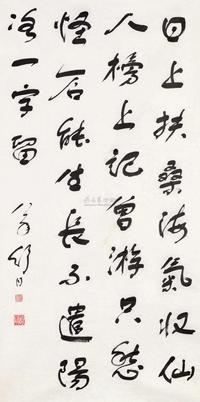 日上扶桑海氣收仙
人榜上記曾游只愁
怪石能生長不遣陽
冰一字留
舒同